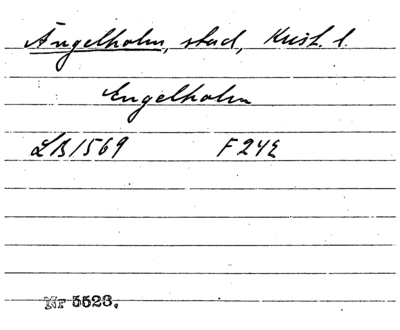 Ängelholm, stad, Krist. l.
Engelholm
LB 1569 F 24E
Nr 5523.